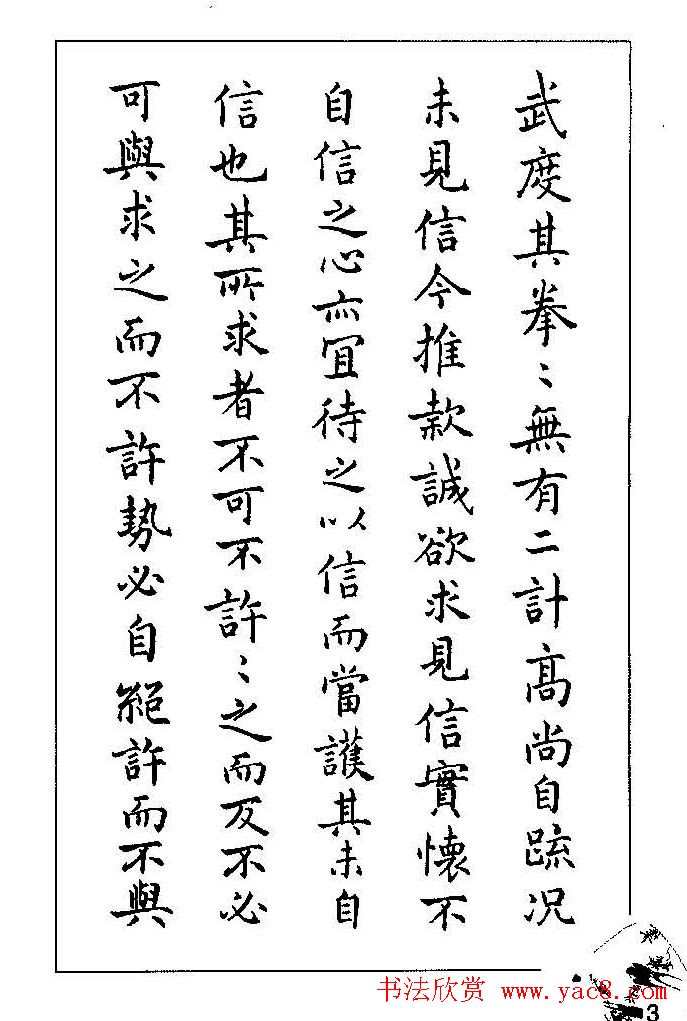 武度其拳〻無有二計高尚自疏况
未見信今推款誠欲求見信實懷不
自信之心亦宜待之以信而當護其未自
信也其所求者不可不許〻之而反不必
可與求之而不許勢必自絕許而不與
书法欣赏 www.yac8.com
3